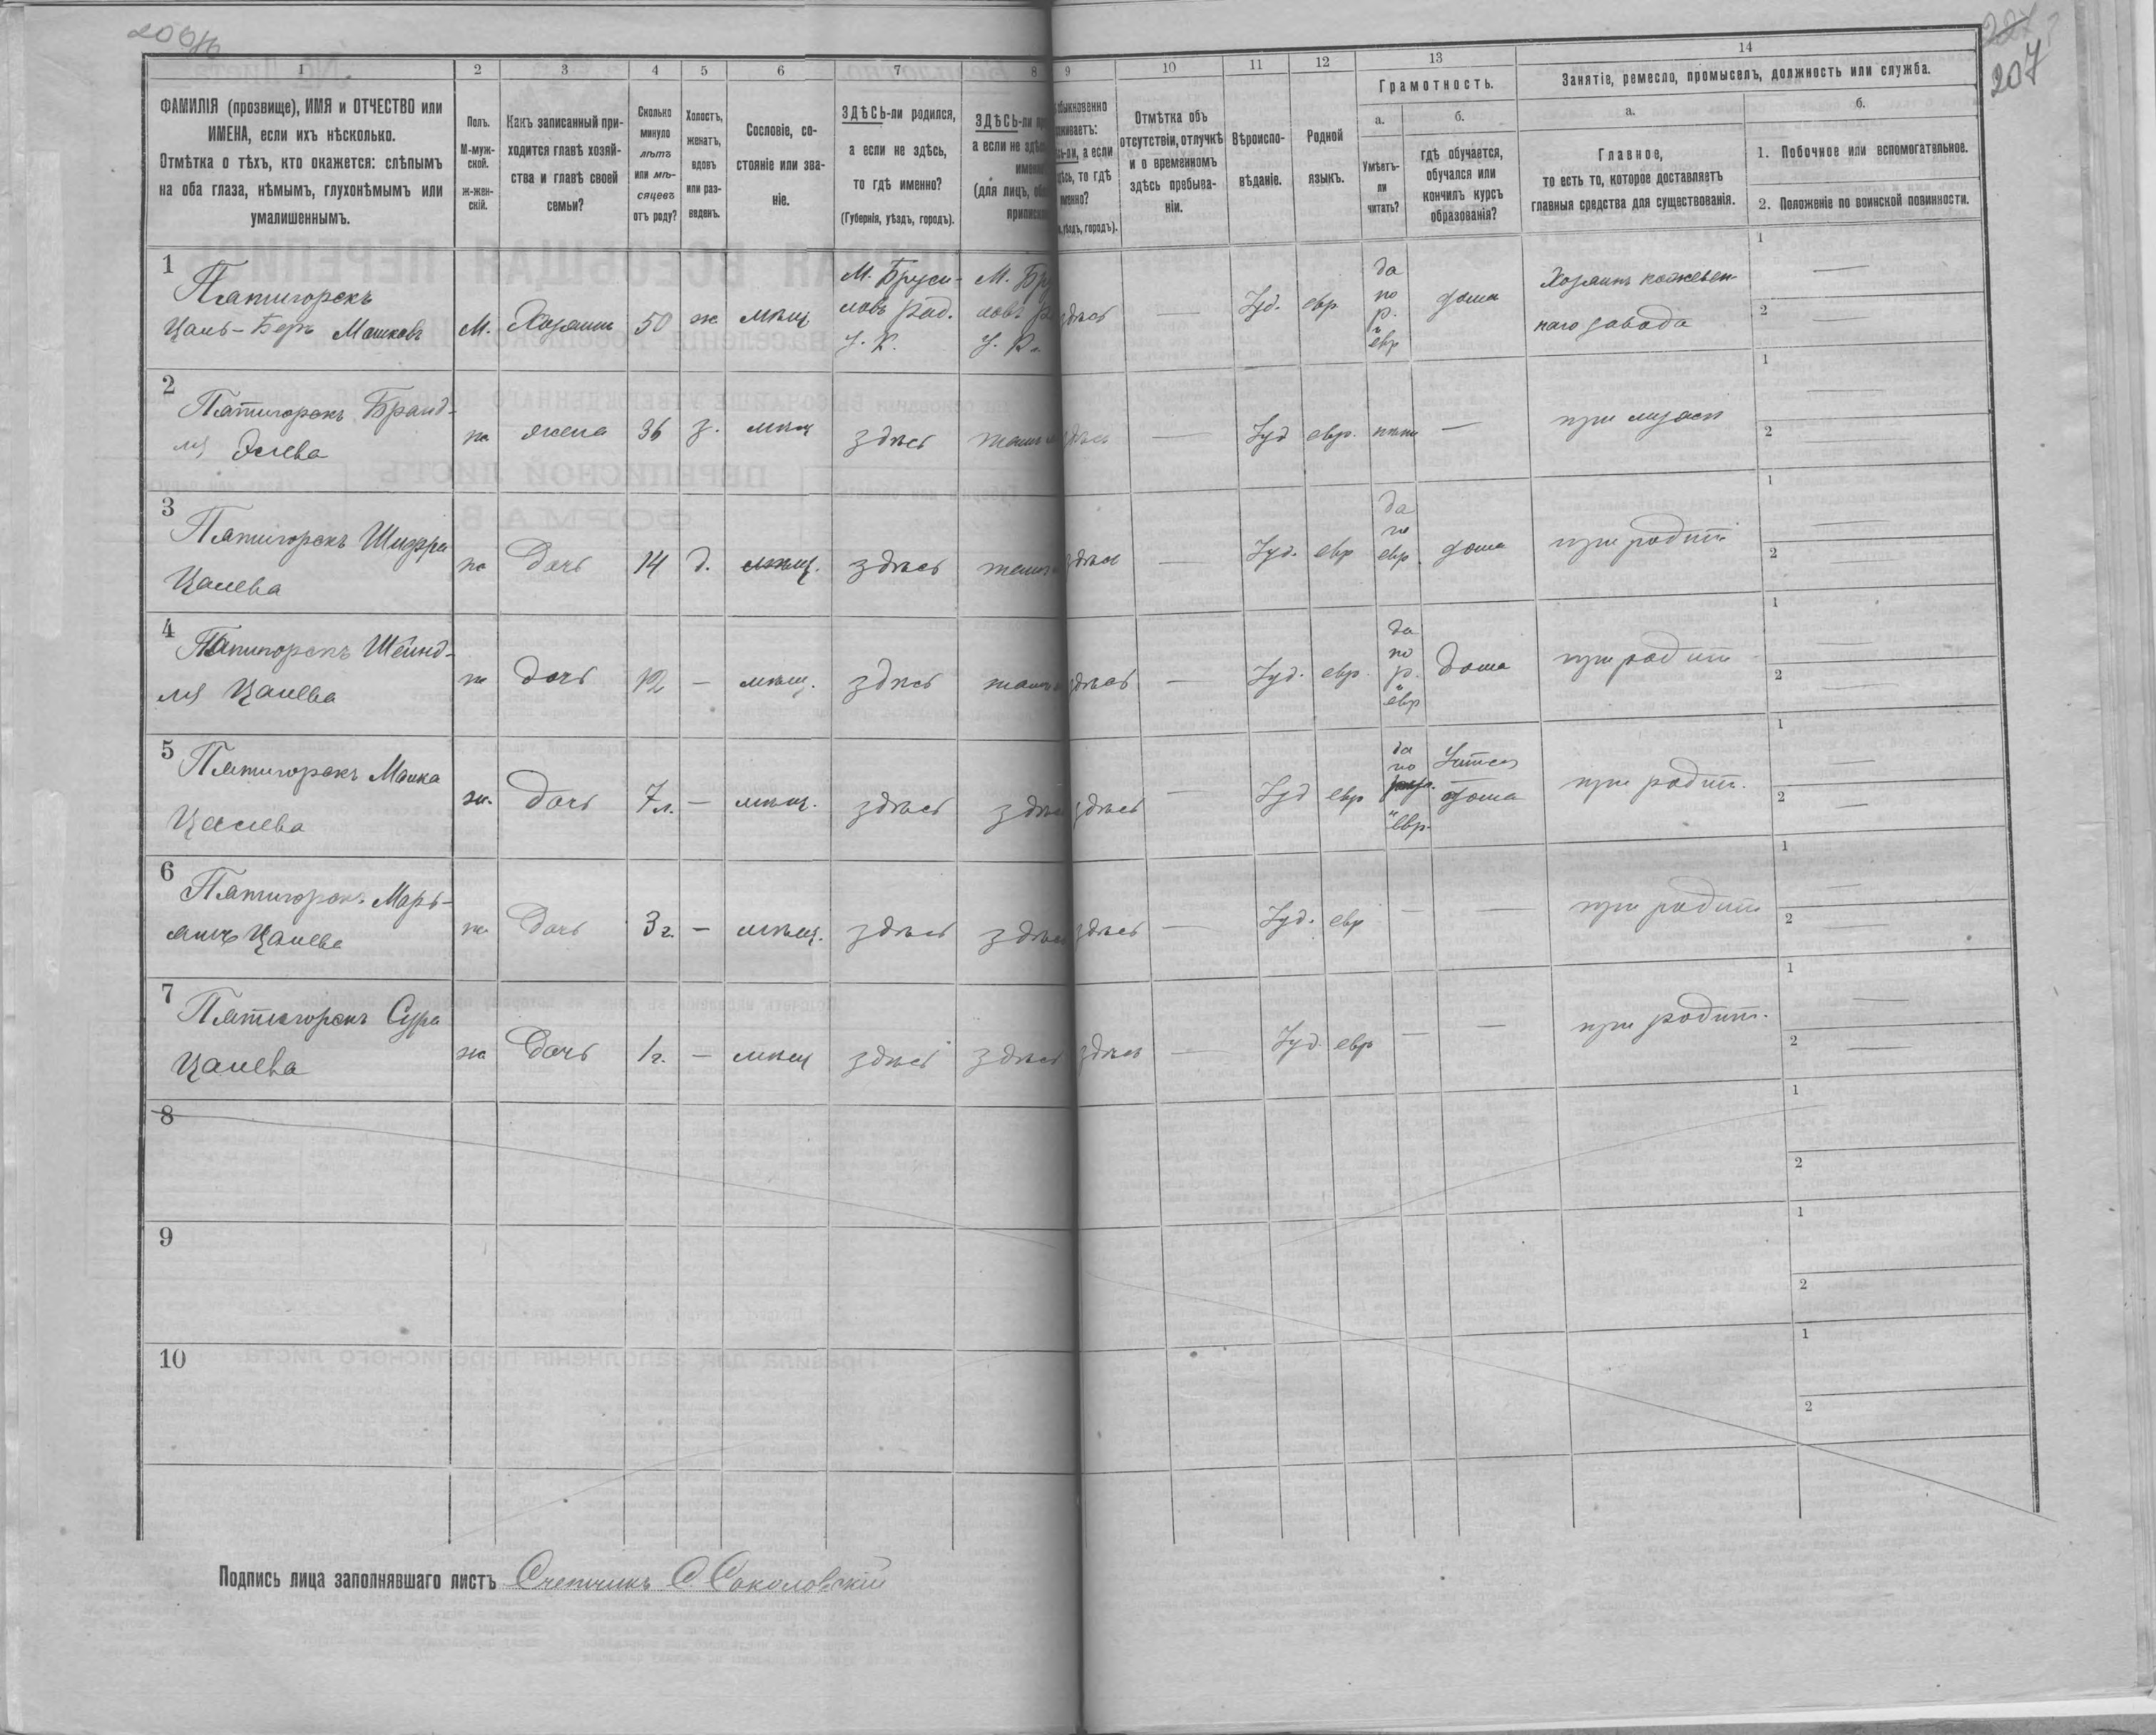 206об
207
1 2 3 4 5 6 7 8 9 10 11 12 13 14
ФАМИЛІЯ (прозвище), ИМЯ и ОТЧЕСТВО или
ИМЕНА, если ихъ нѣсколько.
Отмѣтка о тѣхъ, кто окажется: слѣпымъ
на оба глаза, нѣмымъ, глухонѣмымъ или
умалишеннымъ.
Полъ.
М-муж-
ской.
ж-жен-
скій.
Какъ записанный при-
ходится главѣ хозяй-
ства и главѣ своей
семьи?
Сколько
минуло
лѣтъ
или мѣ-
сяцевъ
отъ роду?
Холостъ,
женатъ,
вдовъ
или раз-
веденъ.
Сословіе, со-
стояніе или зва-
ніе.
ЗДѢСЬ-ли родился,
а если не здѣсь,
то гдѣ именно?
(Губернія, уѣздъ, городъ).
ЗДѢСЬ-ли
а если не
(для лицъ,
а если
то гдѣ
городъ).
Отмѣтка объ
отсутствіи, отлучкѣ
и о временномъ
здѣсь пребыва-
ніи.
Вѣроиспо-
вѣданіе.
Родной
языкъ.
Грамотность.
а.
Умѣетъ-
ли
читать?
б.
гдѣ обучается,
обучался или
кончилъ курсъ
образованія?
Занятіе, ремесло, промыселъ, должность или служба.
а.
Главное,
то есть то, которое доставляетъ
главныя средства для существованія.
б.
1. Побочное или вспомогательное.
2. Положеніе по воинской повинности.
1 Пятигорскъ
Цаль-Беръ Мошковъ М. Хозяинъ 50 ж мѣщ
М. Бруси-
ловъ Рад.
У. К.
М. Бру
ловъ Р
У. К.
здѣсь — Іуд. евр
да
по
р.
и
евр
дома
Хозяинъ кожевен-
наго завода
1 —
2 —
2 Пятигорскъ Бранд-
ля ж жена 36 з. мѣщ здѣсь тамъ здѣсь — Іуд евр. нѣтъ — при мужѣ
1 —
2 —
3 Пятигорскъ Шифра
Цалева ж Дочь 14 д. мѣщ. здѣсь тамъ здѣсь — Іуд. евр
да
по
евр.
дома при родит
1 —
2 —
4 Пятигорскъ Шейнд-
ля Цалева ж дочь 12 — мѣщ. здѣсь тамъ здѣсь — Іуд. евр.
да
по
р.
и
евр
дома при родит
1 —
2 —
5 Пятигорскъ Малка
Цалева ж. дочь 7 л. — мѣщ. здѣсь здѣсь здѣсь — Іуд евр
да
по
и
евр.
дома при родит.
1
2 —
6 Пятигорск. Марь-
Цалева ж Дочь 3 г. — мѣщ. здѣсь здѣсь здѣсь — Іуд. евр — — при родит
1 —
2 —
7 Пятигорскъ Сура
Цалева ж Дочь 1 г. — мѣщ здѣсь здѣсь здѣсь — Іуд. евр — — при родит.
1 —
2 —
8
1
2
9
1
2
10
1
2
Подпись лица заполнявшаго листъ Счетчикъ С Соколовскій